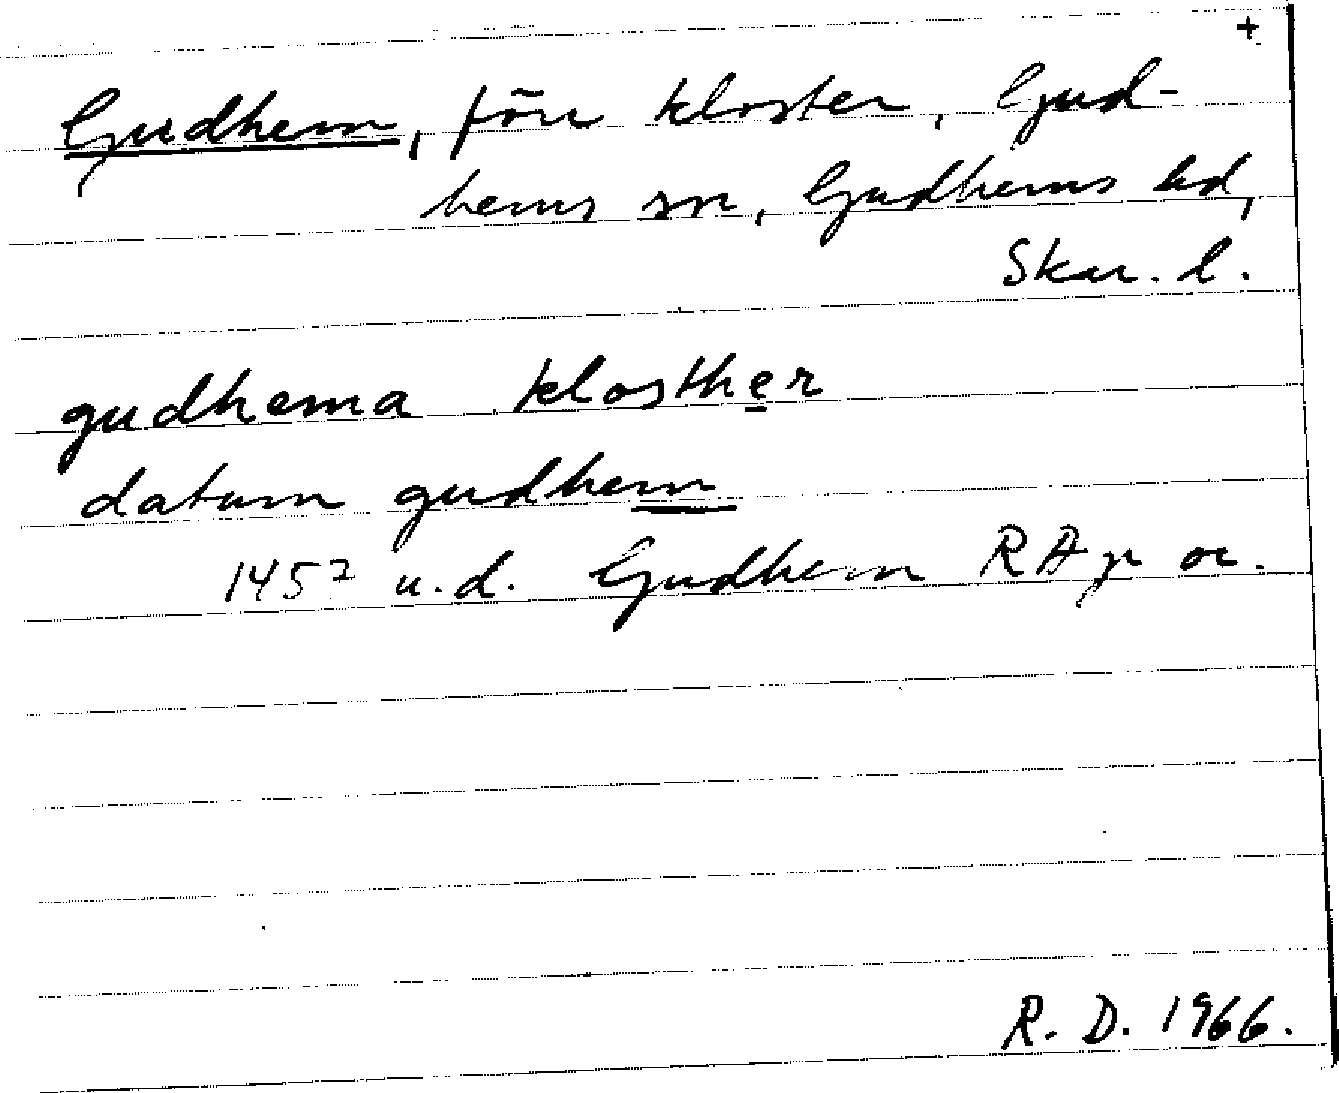 +
Gudhem, förr kloster, Gud-
hems sn, Gudhems hd,
Skar. l.
gudhema klosther
datum gudhem
1452 u.d. Gudhem RAp or.
R. D. 1966.